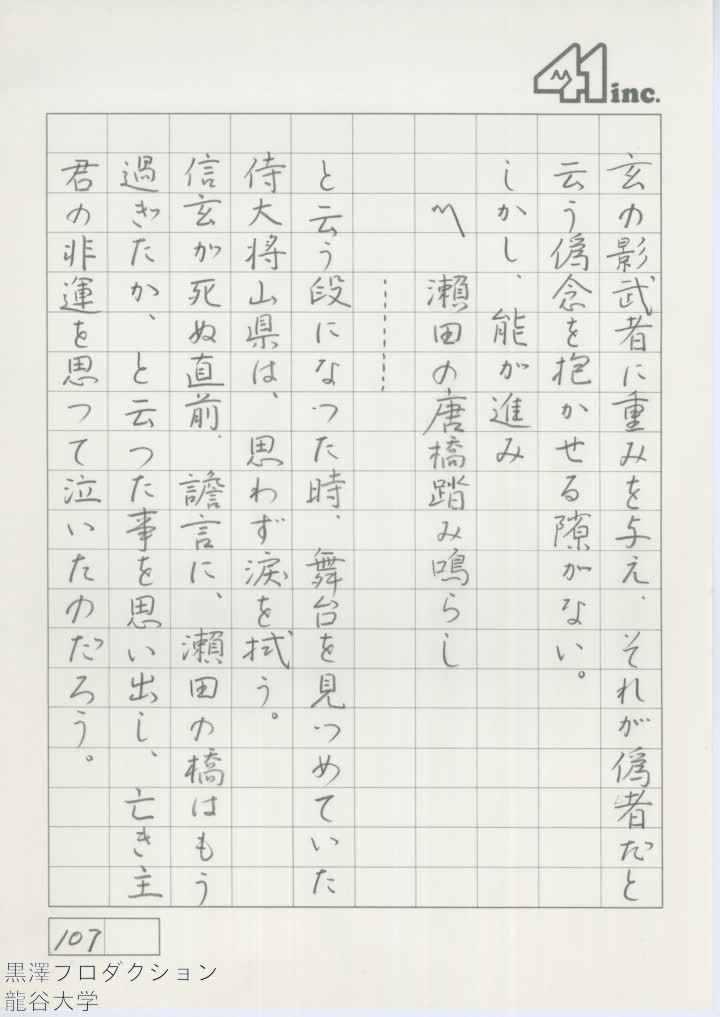 41 inc.
玄の影武者に重みを与え、それが偽者だと
云う偽念を抱かせる隙がない。
しかし、能が進み
〽 瀬田の唐橋踏み鳴らし
------
と云う段になった時、舞台を見つめていた
侍大将山県は、思わず涙を拭う。
信玄が死ぬ直前、譫言に、瀬田の橋はもう
過ぎたか、と云った事を思い出し、亡き主
君の非運を思って泣いたのだろう。
107
黒澤フロダクション
龍谷大学